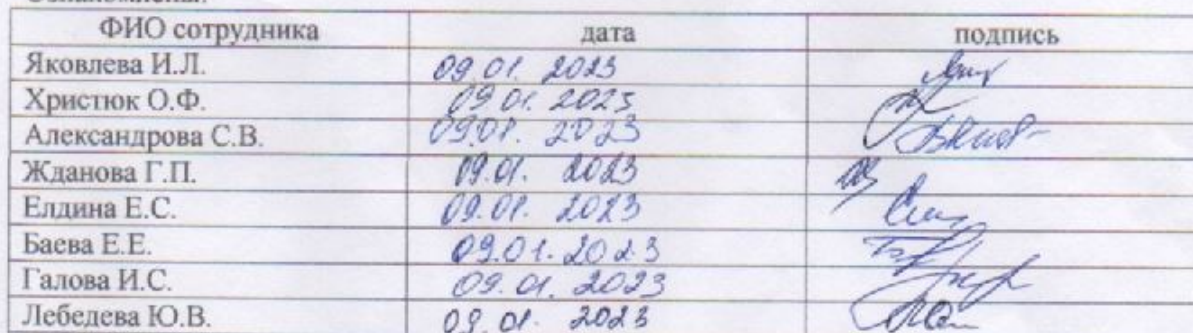 ФИО сотрудника дата подпись
Яковлева И.Л. 09.01. 2023
Христюк О.Ф. 09.01. 2023
Александрова С.В. 09.01. 2023
Жданова Г.П. 09.01. 2023
Елдина Е.С. 09.01. 2023
Баева Е.Е. 09.01.2023
Галова И.С. 09.01. 2023
Лебедева Ю.В. 09.01. 2023